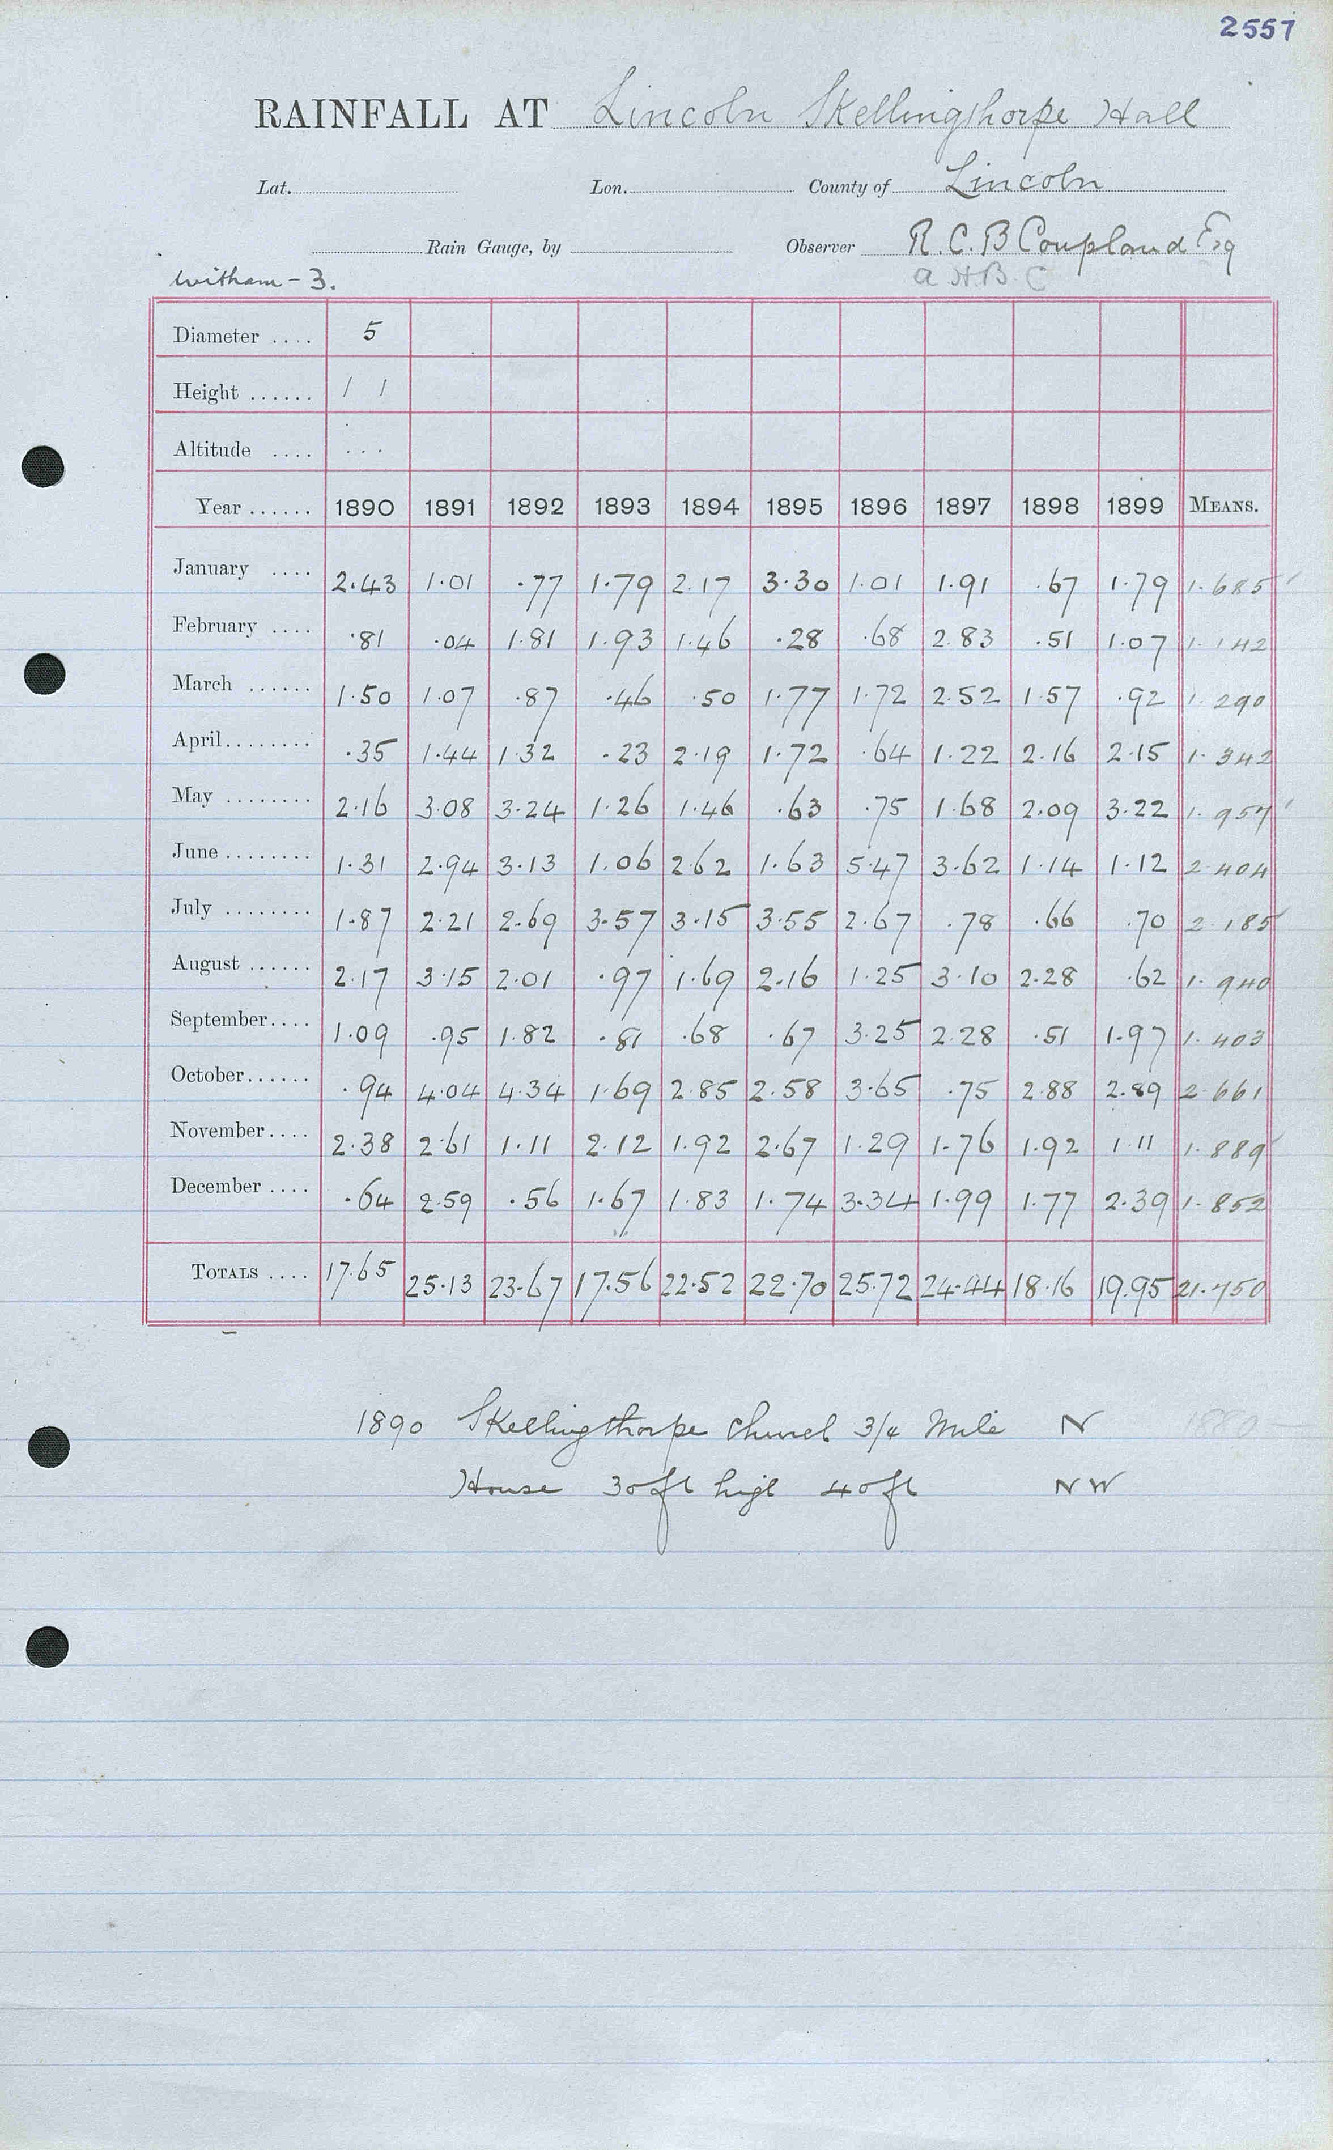 2557
RAINFALL AT Lincoln Skellingthorpe Hall
Lat. Lon. County of Lincoln
Rain Gauge, by Observer R. C. B Coupland Esq
Witham - 3. a H.B. C
Diameter .... 5
Height ...... / /
Altitude .... ...
Year ...... 1890 1891 1892 1893 1894 1895 1896 1897 1898 1899 MEANS.
January .... 2.43 1.01 .77 1.79 2.17 3.30 1.01 1.91 .67 1.79 1.685
February .... .81 .04 1.81 1.93 1.46 .28 .68 2.83 .51 1.07 1.142
March ...... 1.50 1.07 .87 .46 .50 1.77 1.72 2.52 1.57 .92 1.290
April........ .35 1.44 1.32 .23 2.19 1.72 .64 1.22 2.16 2.15 1.342
May ........ 2.16 3.08 3.24 1.26 1.46 .63 .75 1.68 2.09 3.22 1.957
June ........ 1.31 2.94 3.13 1.06 2.62 1.63 5.47 3.62 1.14 1.12 2.404
July ........ 1.87 2.21 2.69 3.57 3.15 3.55 2.67 .78 .66 .70 2.185
August ...... 2.17 3.15 2.01 .97 1.69 2.16 1.25 3.10 2.28 .62 1.940
September.... 1.09 .95 1.82 .81 .68 .67 3.25 2.28 .51 1.97 1.403
October...... .94 4.04 4.34 1.69 2.85 2.58 3.65 .75 2.88 2.89 2.661
November.... 2.38 2.61 1.11 2.12 1.92 2.67 1.29 1.76 1.92 1.11 1.889
December .... .64 2.59 .56 1.67 1.83 1.74 3.34 1.99 1.77 2.39 1.852
TOTALS .... 17.65 25.13 23.67 17.56 22.52 22.70 25.72 24.44 18.16 19.95 21.750
1890 Skellingthorpe Church 3/4 Mile N
House 30ft high 40ft NW